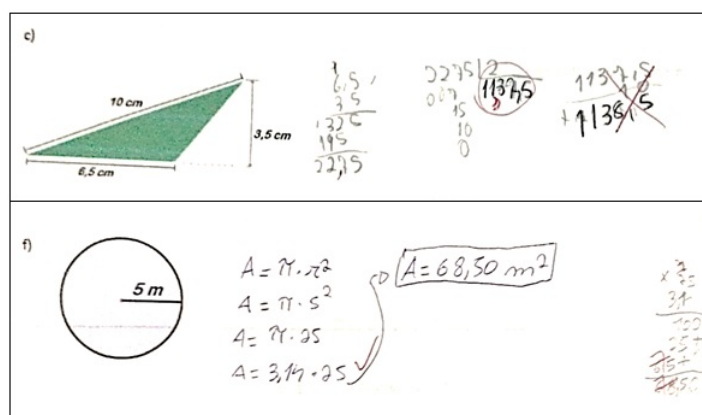 c)
10 cm
3,5 cm
6,5 cm
6,5
3,5
325
195
22,75
2275 2
007 1137,5
15
10
0
1137,5
f)
5 m
A = π · r²
A = π · 5²
A = π · 25
A = 3,14 · 25
A = 68,50 m²